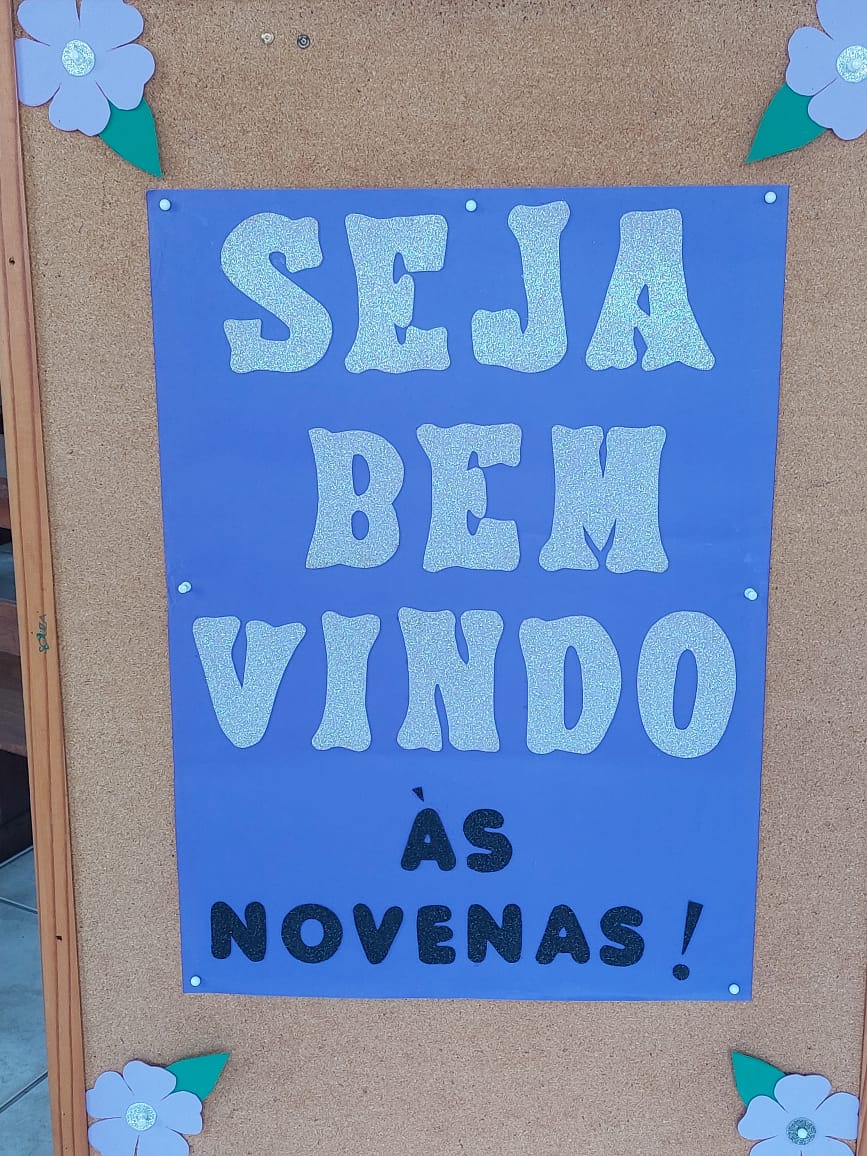 SEJA
BEM
VINDO
ÀS
NOVENAS!